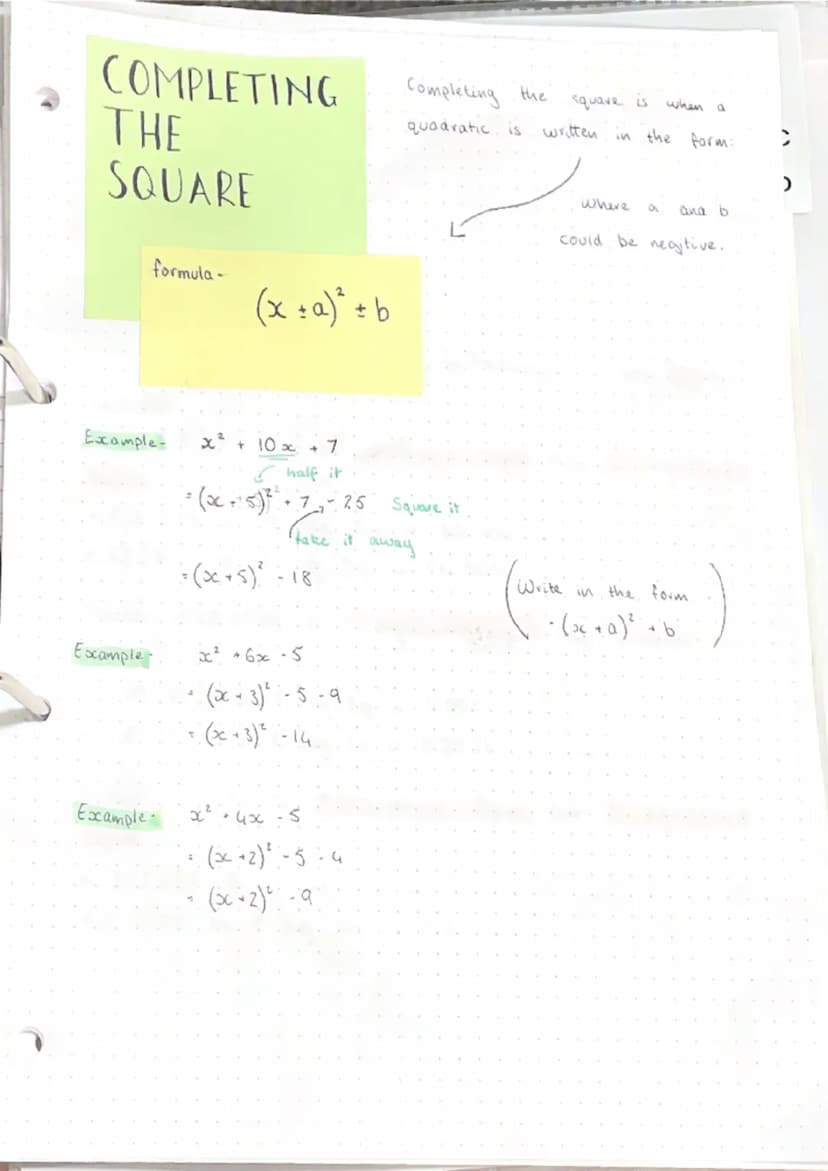 COMPLETING
THE
SQUARE
Completing the square is when a
quadratic is written in the form:
where a and b
could be negtive.
formula -
(x ± a)² ± b
Example - x² + 10x + 7
half it
= (x + 5)² + 7 - 25 Square it
take it away
= (x + 5)² - 18
(Write in the form
- (x + a)² + b)
Example - x² + 6x - 5
= (x + 3)² - 5 - 9
= (x + 3)² - 14
Example - x² + 4x - 5
= (x + 2)² - 5 - 4
= (x + 2)² - 9